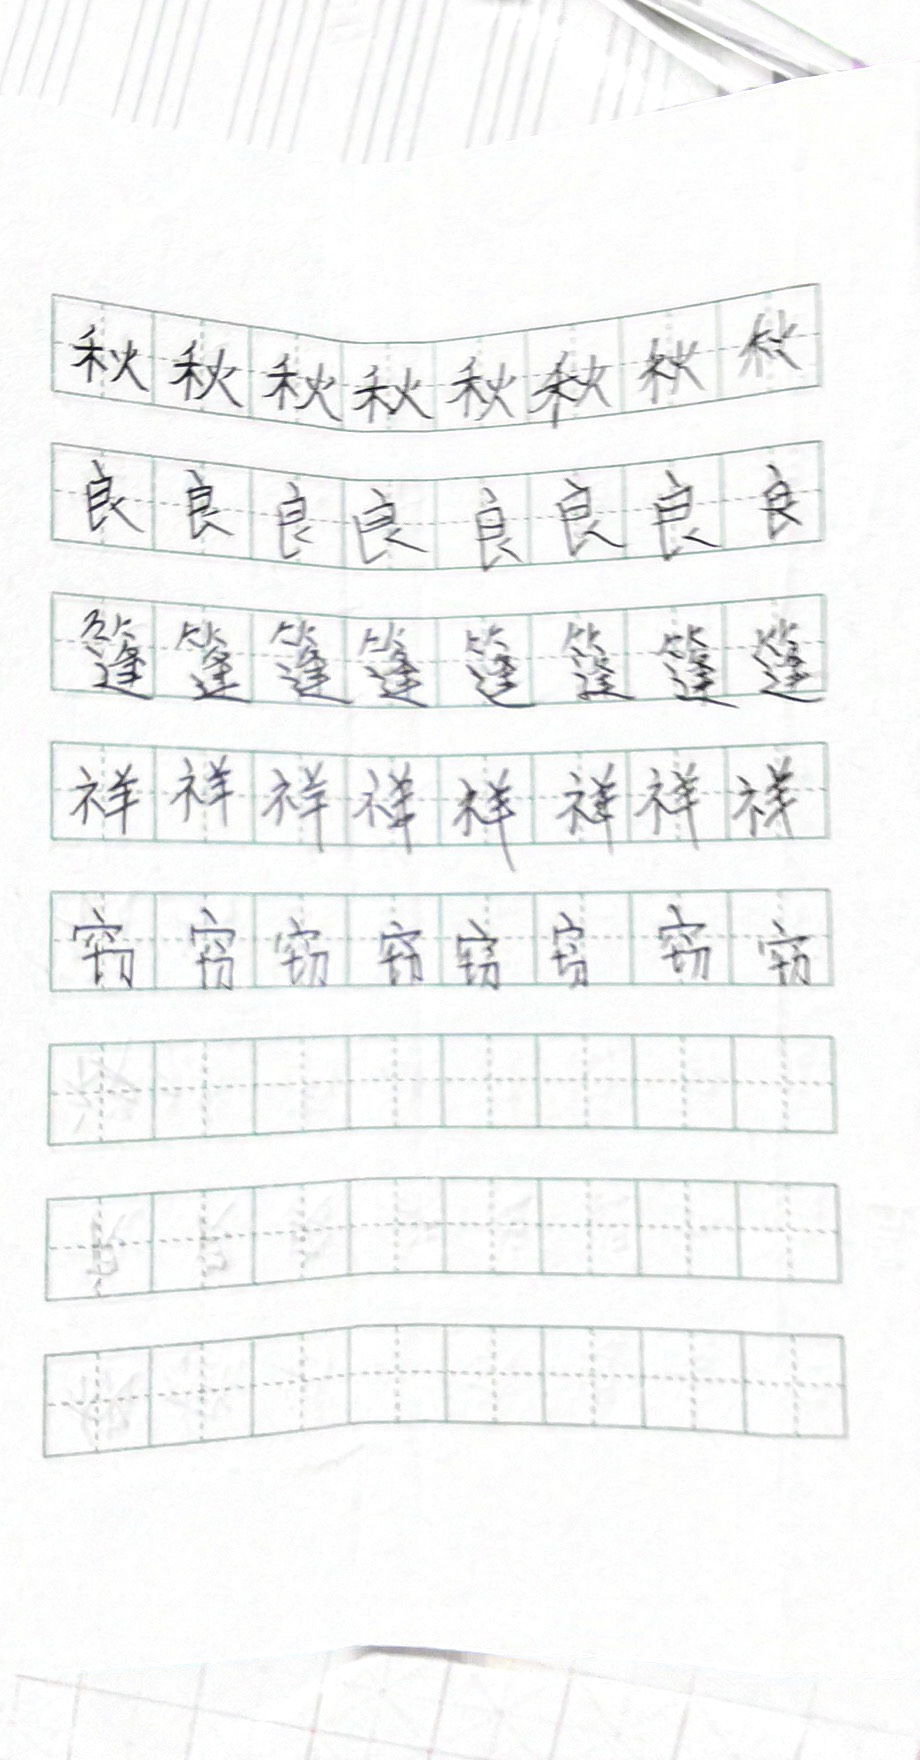 秋秋秋秋秋秋秋秋
良良良良良良良良
篷篷篷篷篷篷篷篷
祥祥祥祥祥祥祥祥
窃窃窃窃窃窃窃窃